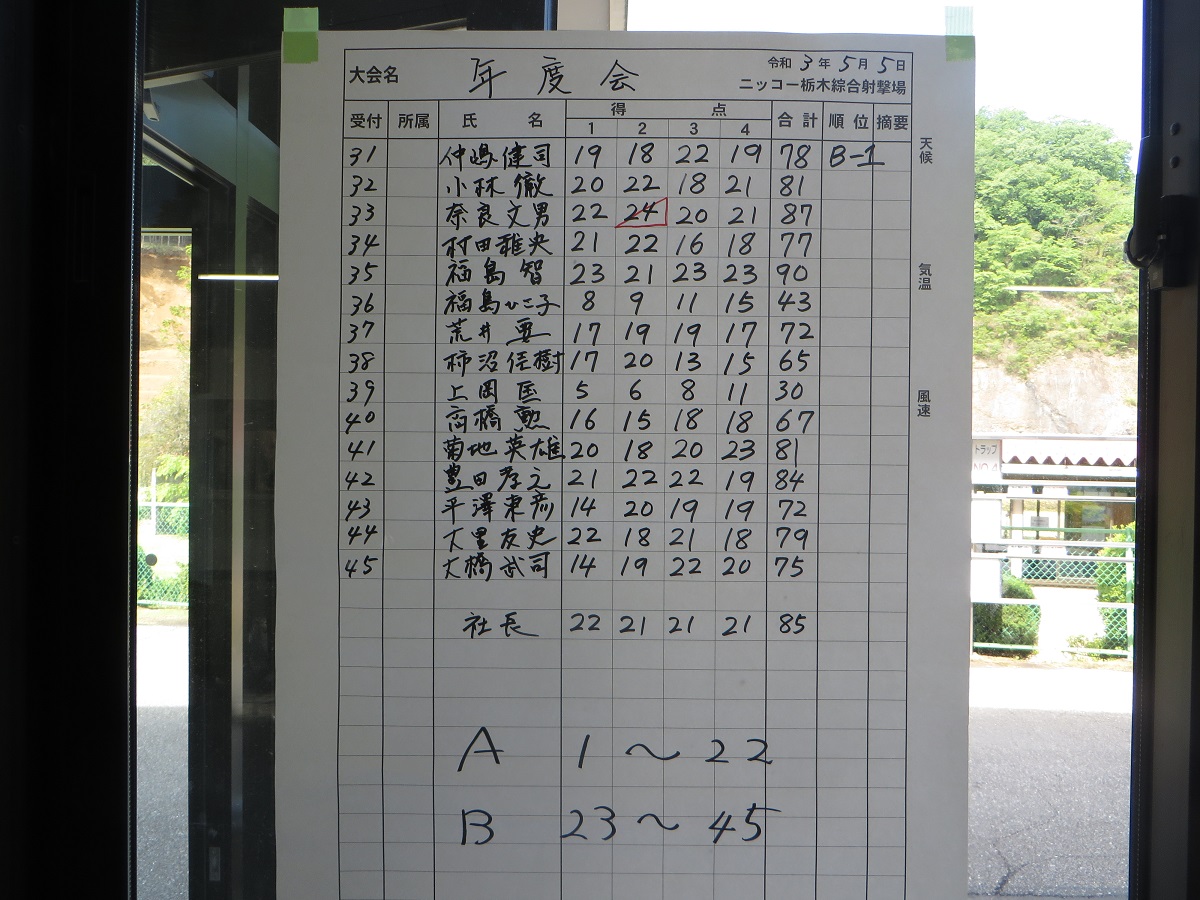 大会名 年度会 令和3年5月5日
ニッコー栃木綜合射撃場
受付 所属 氏名 得点 合計 順位 摘要
1 2 3 4
31 仲嶋健司 19 18 22 19 78 B-1
32 小林徹 20 22 18 21 81
33 奈良文男 22 24 20 21 87
34 村田雅央 21 22 16 18 77
35 福島智 23 21 23 23 90
36 福島ひこ子 8 9 11 15 43
37 荒井 17 19 19 17 72
38 柿沼佳樹 17 20 13 15 65
39 上岡匡 5 6 8 11 30
40 高橋勲 16 15 18 18 67
41 菊地英雄 20 18 20 23 81
42 豊田孝元 21 22 22 19 84
43 平澤東彦 14 20 19 19 72
44 大里友史 22 18 21 18 79
45 大橋武司 14 19 22 20 75
社長 22 21 21 21 85
A 1～22
B 23～45
天候
気温
風速
トラップ